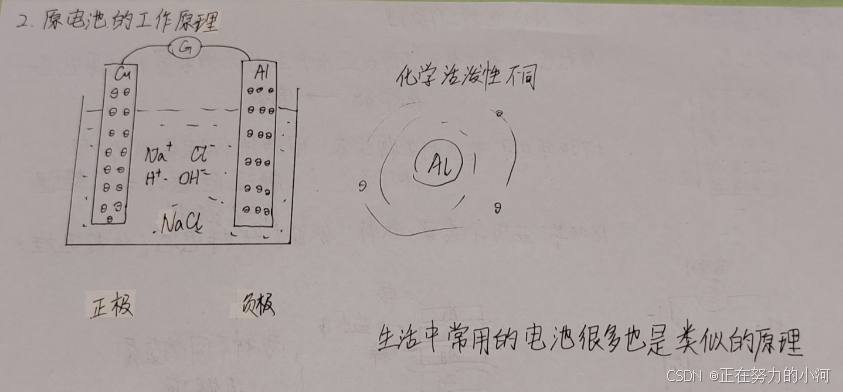 2. 原电池的工作原理
G
Cu
Al
化学活泼性不同
Na⁺ Cl⁻
H⁺ OH⁻
NaCl
Al
正极
负极
生活中常用的电池很多也是类似的原理
CSDN @正在努力的小河